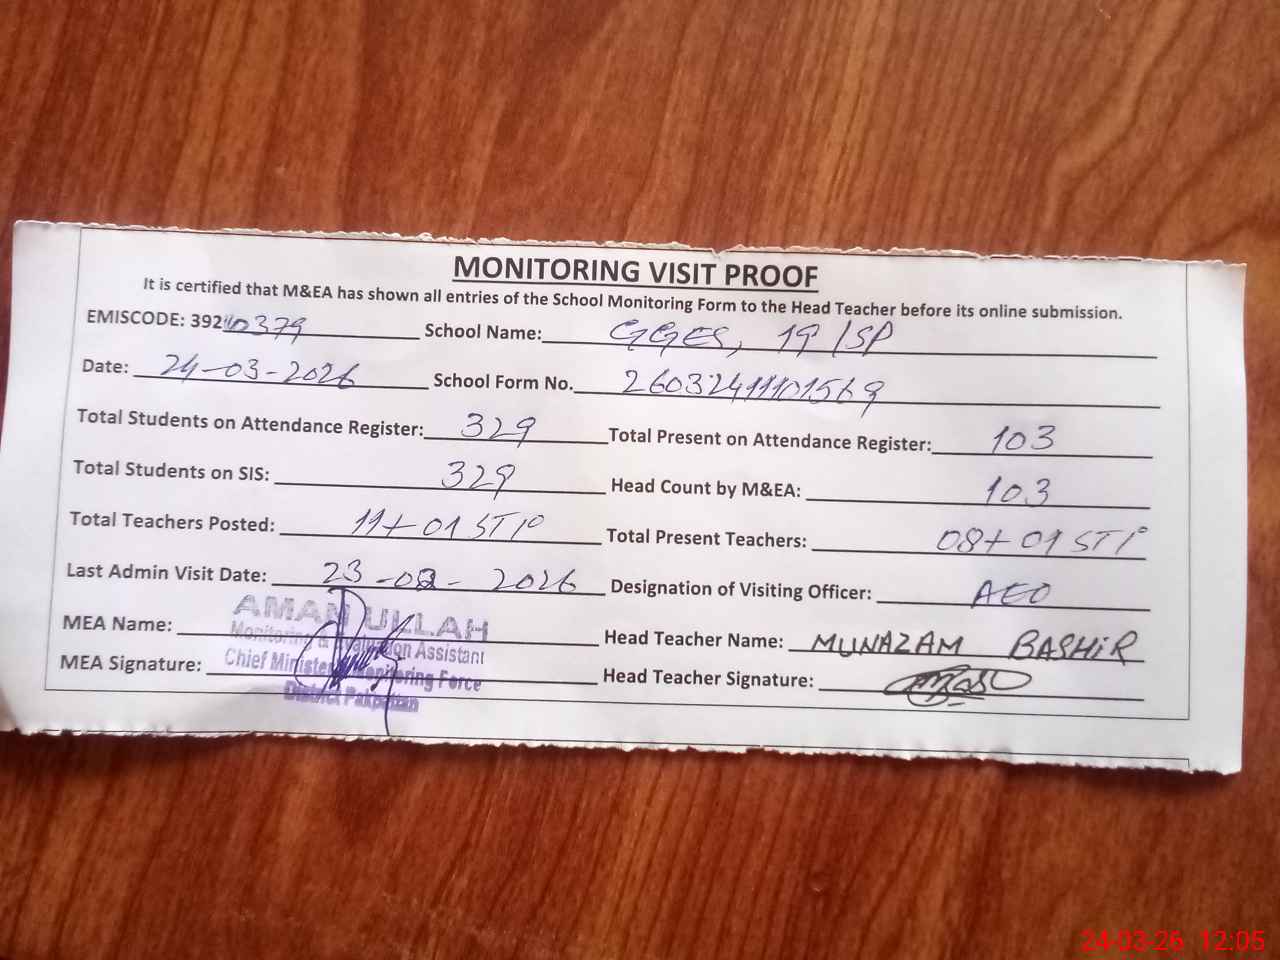 MONITORING VISIT PROOF
It is certified that M&EA has shown all entries of the School Monitoring Form to the Head Teacher before its online submission.
EMISCODE: 39210379 School Name: GGES, 19/SP
Date: 24-03-2026 School Form No. 26032411101569
Total Students on Attendance Register: 329 Total Present on Attendance Register: 103
Total Students on SIS: 329 Head Count by M&EA: 103
Total Teachers Posted: 11+01 STI Total Present Teachers: 08+01 STI
Last Admin Visit Date: 23-02-2026 Designation of Visiting Officer: AEO
MEA Name: AMAN ULLAH Head Teacher Name: MUNAZAM BASHIR
Monitoring & Evaluation Assistant
MEA Signature: Chief Minister Monitoring Force Head Teacher Signature:
District Pakpattan
24-03-26 12:05